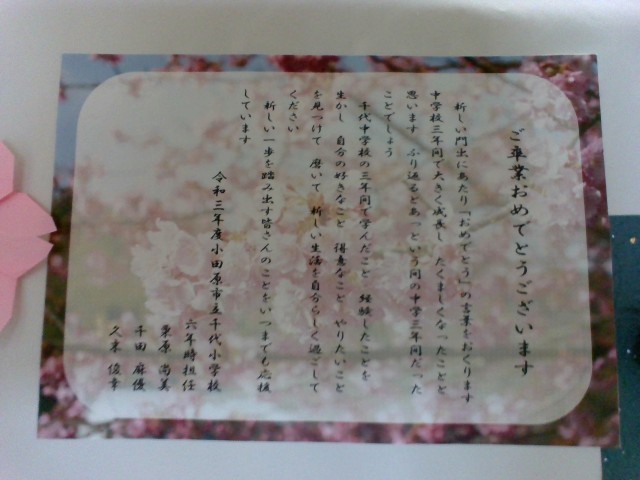 ご卒業おめでとうございます
新しい門出にあたり「おめでとう」の言葉をおくります
中学校三年間で大きく成長し たくましくなったことと
思います ふり返るとあっという間の中学三年間だった
ことでしょう
千代中学校の三年間で学んだこと 経験したことを
生かし 自分の好きなこと 得意なこと やりたいこと
を見つけて 磨いて 新しい生活を自分らしく過ごして
ください
新しい一歩を踏み出す皆さんのことをいつまでも応援
しています
令和三年度小田原市立千代小学校
六年時担任
栗原 尚美
千田 麻優
久米 俊幸